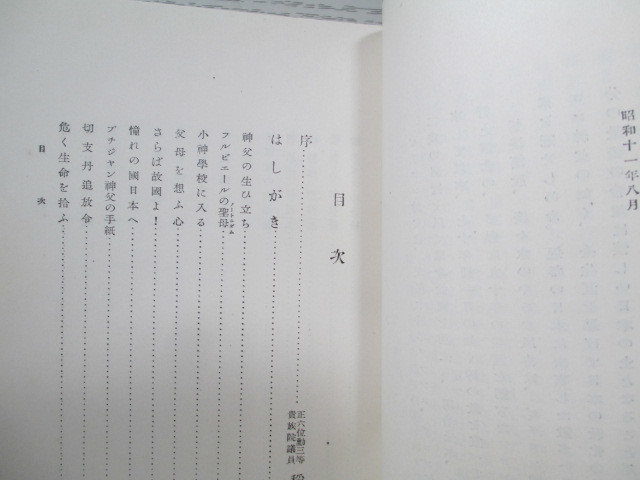 昭和十一年八月
目次
序
正六位勳三等
貴族院議員
はしがき
神父の生ひ立ち
フルピエールの聖母
ノートルダム
小神學校に入る
父母を想ふ心
さらば故國よ!
憧れの國日本へ
プチジャン神父の手紙
切支丹追放令
危く生命を拾ふ
目次